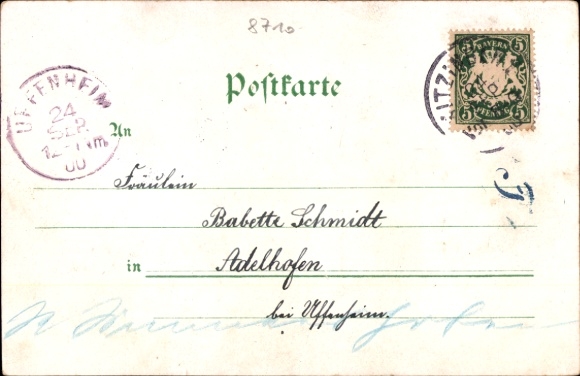 8710
BAYERN
5 5
5 PFENNIG 5
Postkarte
UFFENHEIM
24
SEP
12-1 Nm.
00
An
Fräulein
Babette Schmidt
in Adelhofen
bei Uffenheim.